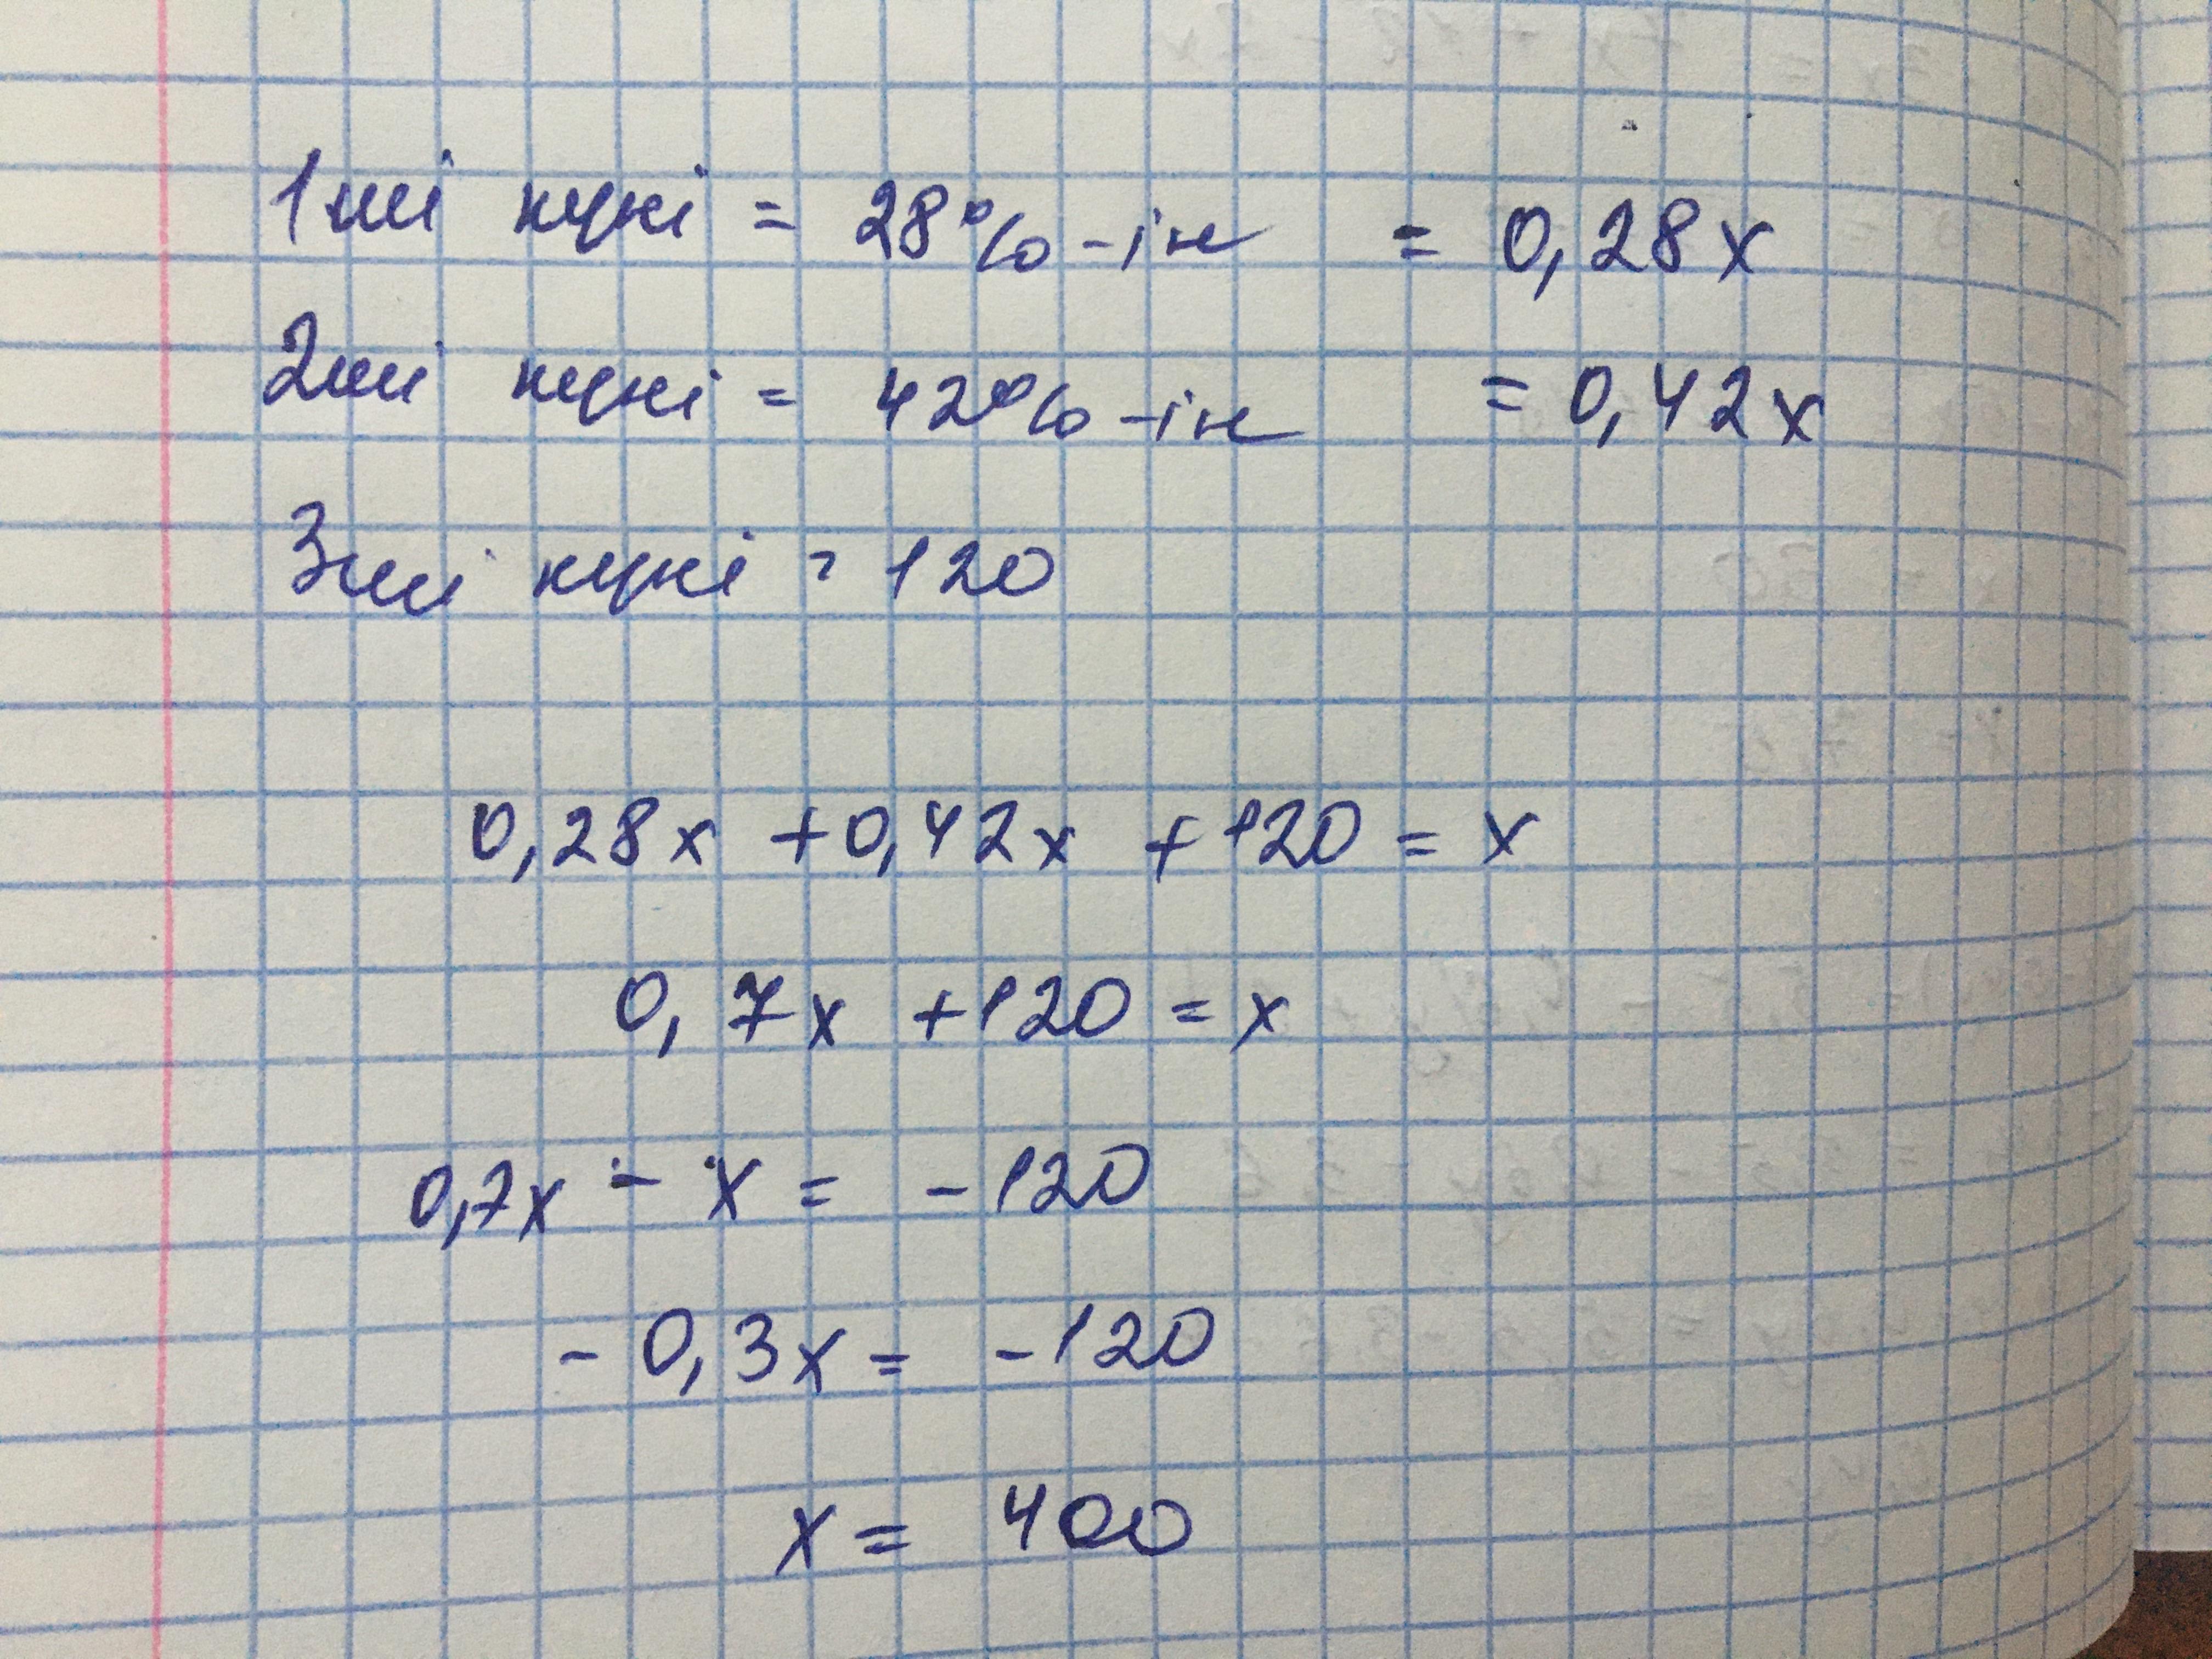 1ші күні = 28%-ін = 0,28x
2ші күні = 42%-ін = 0,42x
3ші күні = 120
0,28x + 0,42x + 120 = x
0,7x + 120 = x
0,7x - x = - 120
- 0,3x = - 120
x = 400